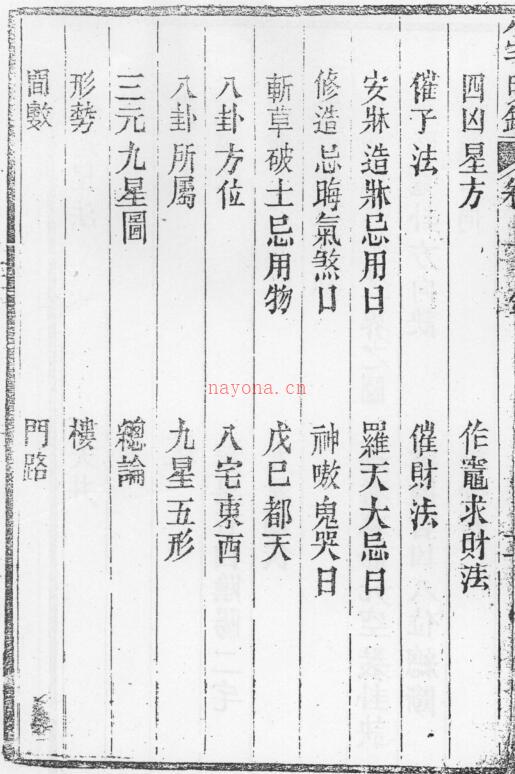 四凶星方 作竈求財法
催子法 催財法
安牀造牀忌用日 羅天大忌日
修造忌晦氣煞日 神嗷鬼哭日
斬草破土忌用物 戊巳都天
八卦方位 八宅東西
八卦所屬 九星五形
三元九星圖 總論
形勢 樓
間數 門路
nayona.cn